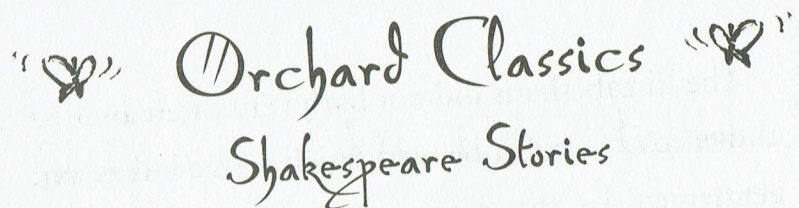 Orchard Classics
Shakespeare Stories